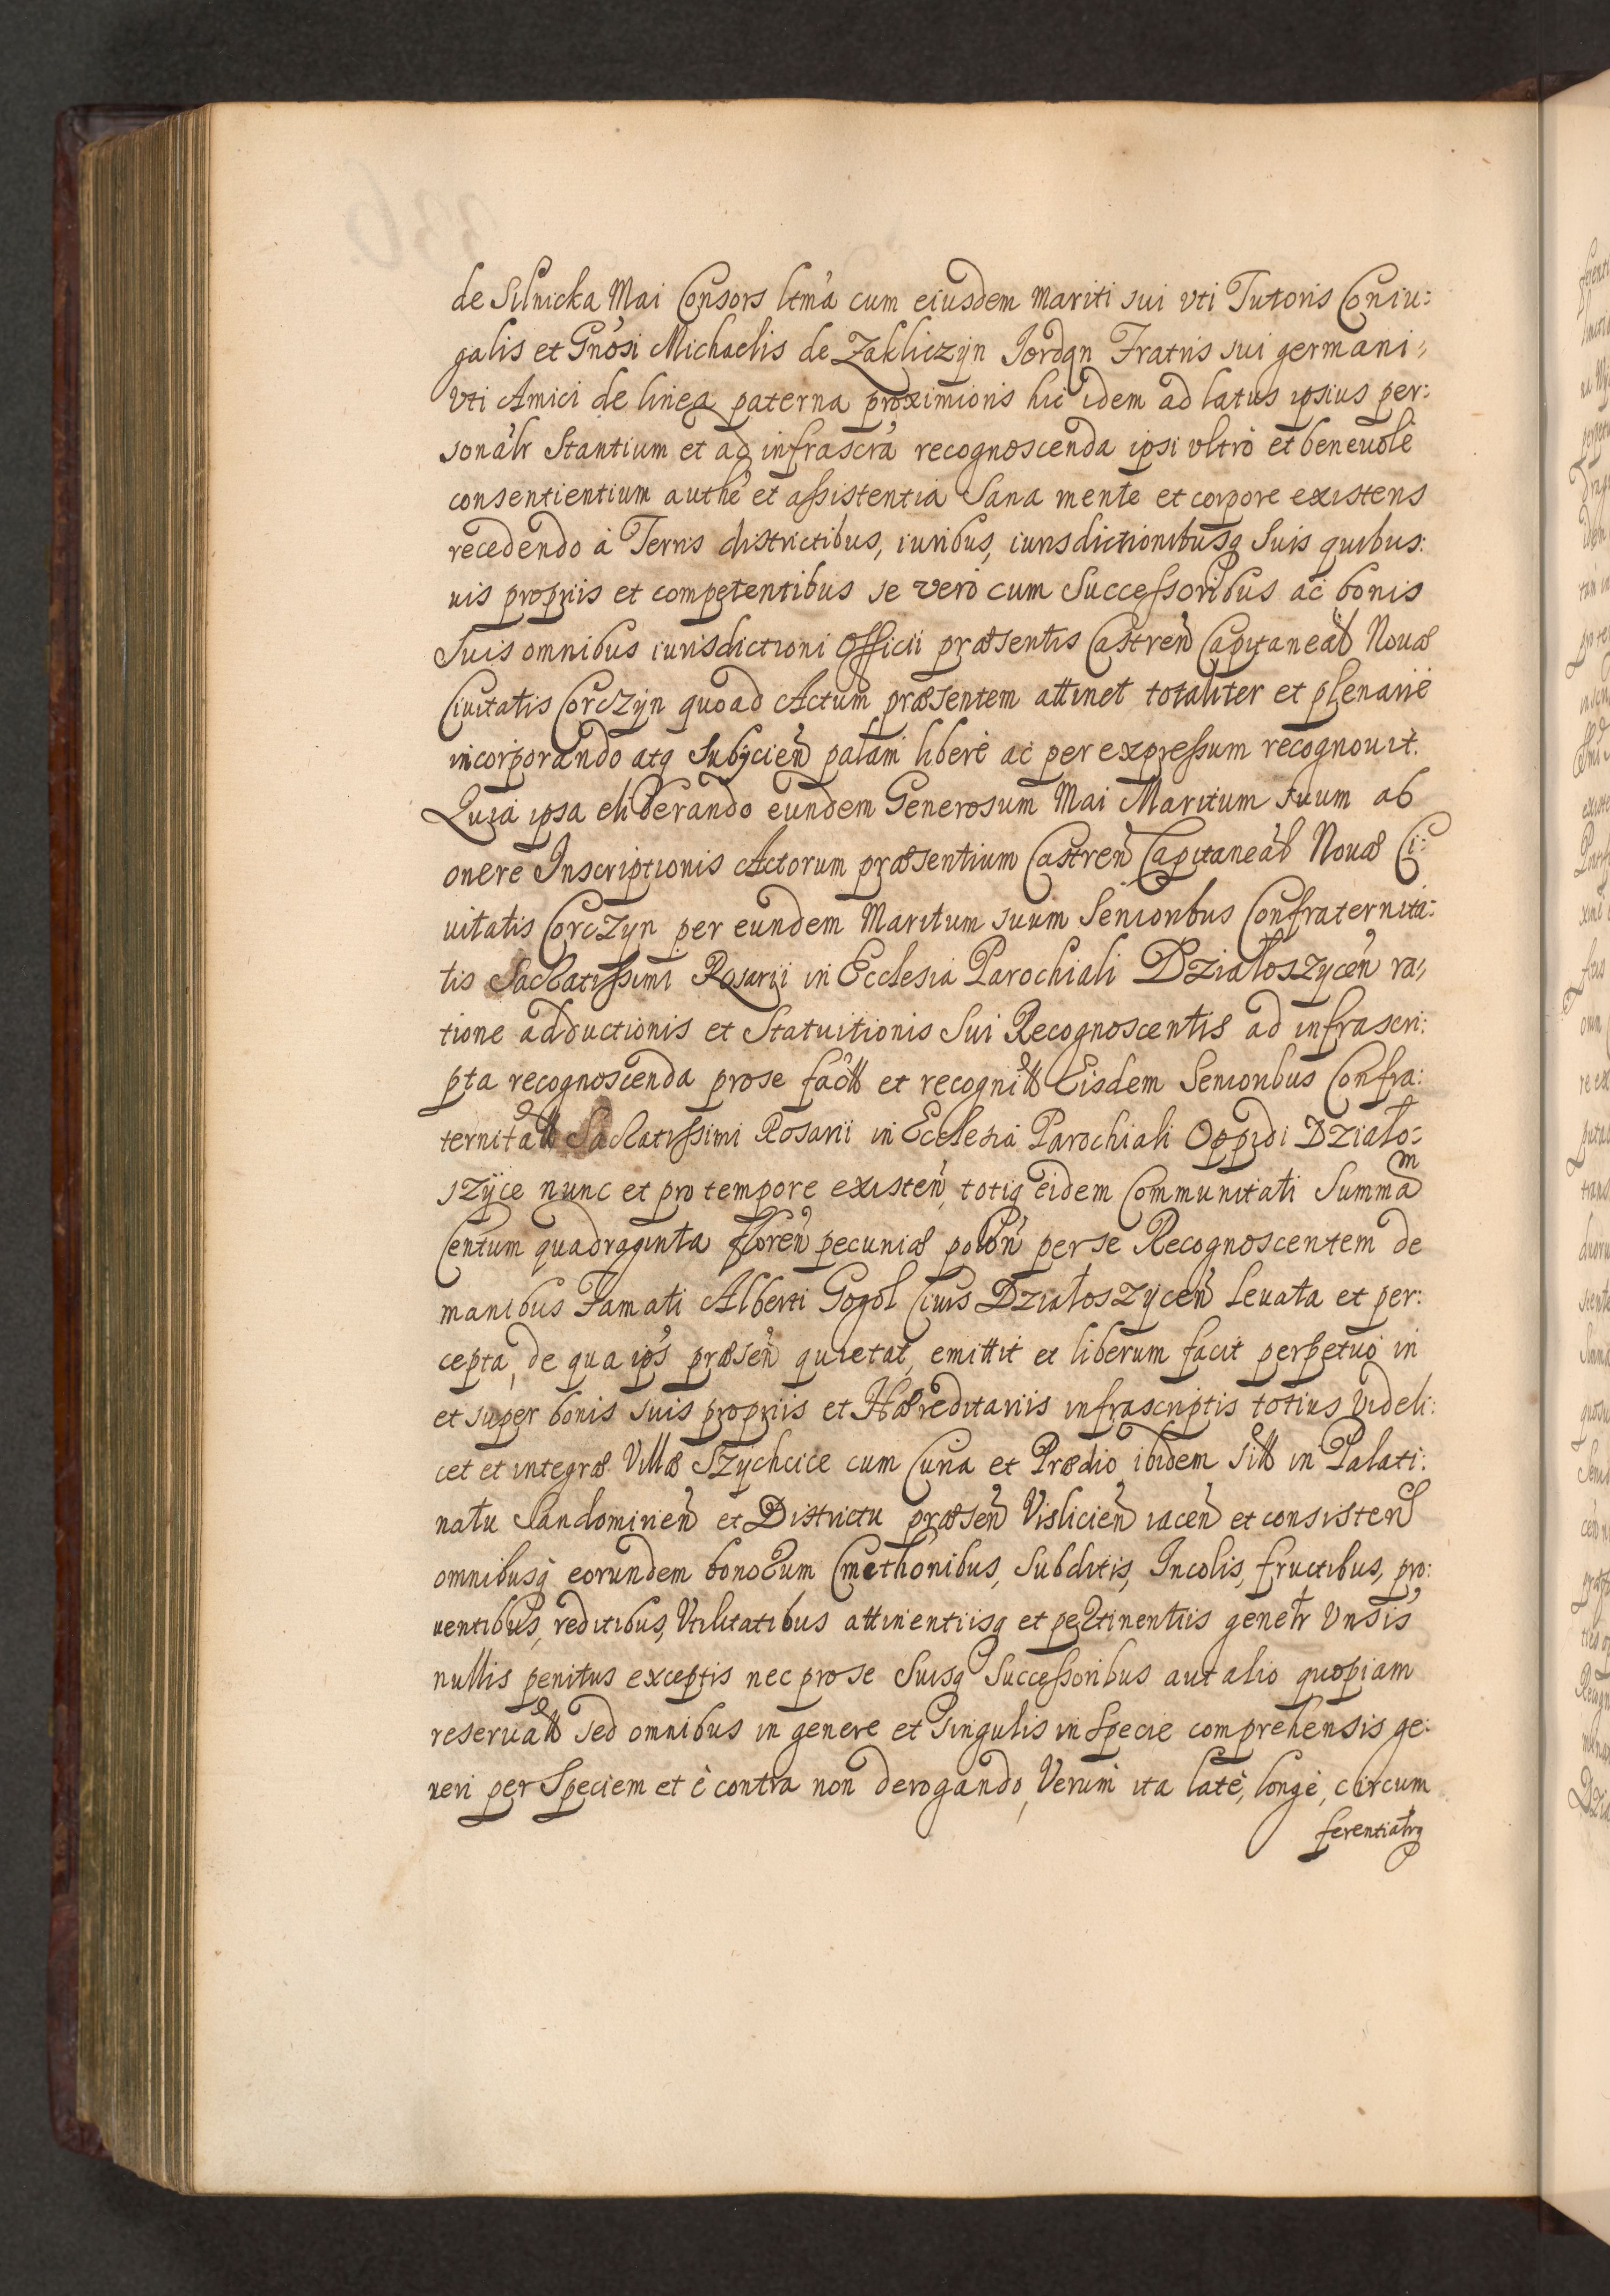 de Silnicka Mai Consors ltm̃a cum eiusdem Mariti sui vti Tutoris Coniu:
galis et Gnõsi Michaelis de Zakliczyn Iordan Fratris sui germani,
Vti Amici de linea paterna proximioris hic idem ad latus ipsius per:
sonàlr Stantium et ad infrascrà recognoscenda ipsi vltrò et beneuolè
consentientium authẽ et assistentia Sana mente et corpore existens
recedendo à Terris districtibus, iuribus, iurisdictionibusq Suis quibus:
uis propriis et competentibus se verò cum Successoribus ac bonis
Suis omnibus iurisdictioni Officii præsentis Castreñ Capitaneał Nouæ
Ciuitatis Corczyn quoad Actum præsentem attinet totaliter et plenariè
incorporando atq Subijcieñ palam liberè ac per expressum recognouit.
Quia ipsa eliberando eundem Generosum Mai Maritum suum ab
onere Inscriptionis Actorum præsentium Castreñ Capitaneał Nouæ Ci:
uitatis Corczyn per eundem Maritum suum Senioribus Confraternita:
tis Sacratissimi Rosarii in Ecclesia Parochiali Działoszyceñ ra,
tione adductionis et Statuitionis Sui Recognoscentis ad infrascri:
pta recognoscenda pro se fact et recognit Eisdem Senioribus Confra:
ternitatt Sacratissimi Rosarii in Ecclesia Parochiali Oppidi Działo:
szyce nunc et pro tempore existeñ, totiq eidem Communitati Summam
Centum quadraginta floreñ pecuniæ poloñ per se Recognoscentem de
manibus Famati Alberti Gogol Ciuis Działoszyceñ Leuata et per:
cepta, de qua ip̃s præseñ quietat, emittit et liberum facit perpetuò in
et super bonis suis propriis et Hæreditariis infrascriptis totius Videli:
cet et integræ Villæ Szychcice cum Curia et Prædio ibidem sitt in Palati:
natu Sandomirieñ et Districtu præseñ Vislicieñ iaceñ et consisteñ
omnibusq eorundem bonorum Cmethonibus, Subditis, Incolis, fructibus, pro:
uentibus, reditibus, Vtilitatibus attinentiisq et pertinentiis genełr Vnsis
nullis penitus exceptis nec pro se Suisq Successoribus aut alio quopiam
reseruatt sed omnibus in genere et Singulis in Specie comprehensis ge:
neri per Speciem et è contra non derogando, Verum ita latè, longè, circum
ferentialrq